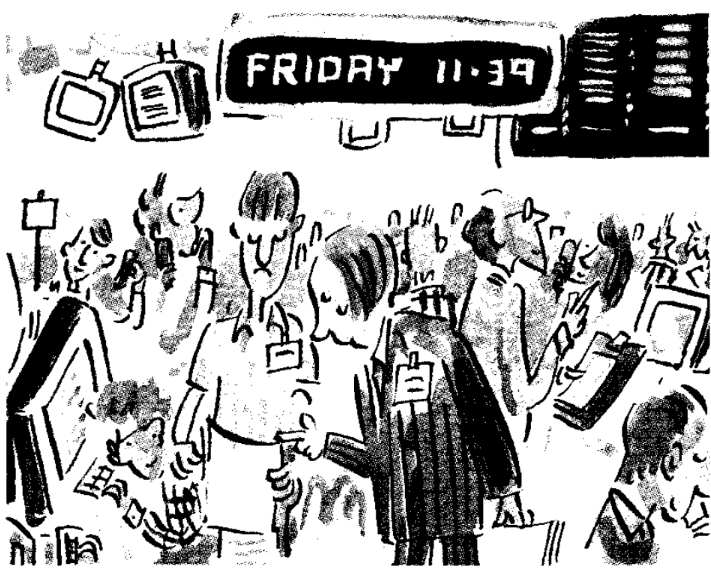 FRIDAY 11.39